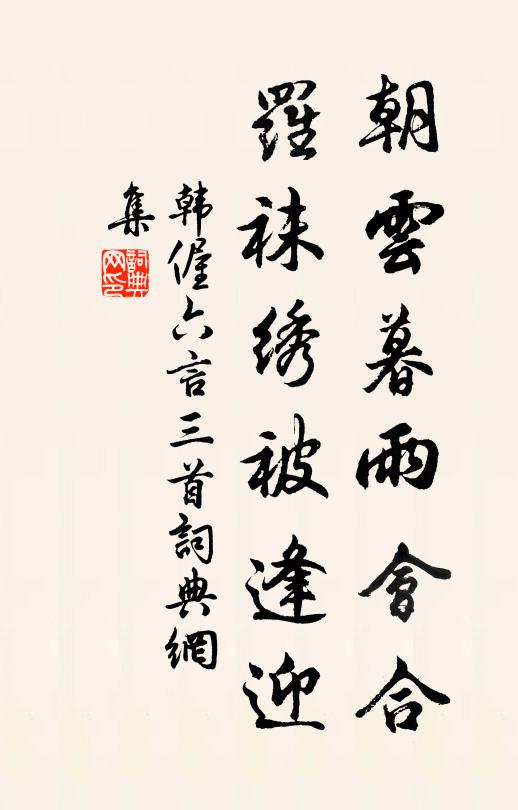 朝雲暮雨會合
羅袜綉被逢迎
韩偓六言三首詞典網
集
詞典网印